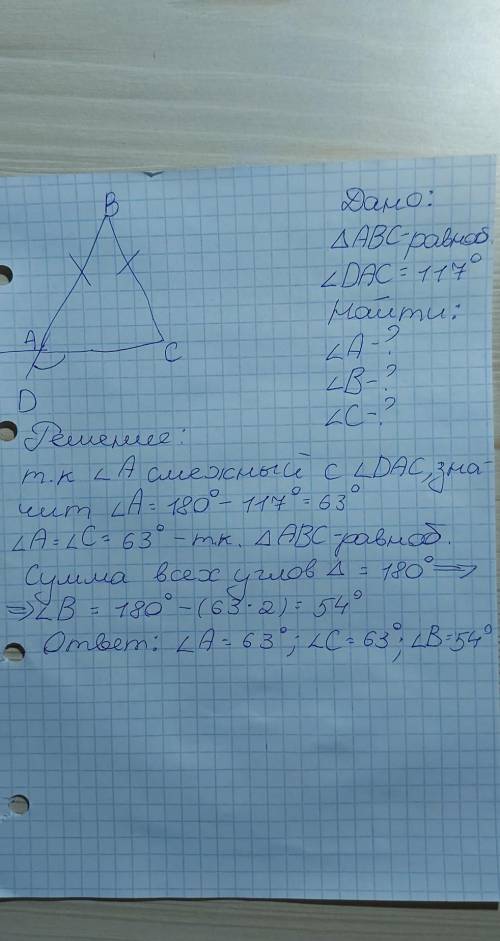 B
A
C
D
Дано:
△ABC-равноб.
∠DAC = 117°
Найти:
∠A-?
∠B-?
∠C-?
Решение:
т.к ∠A смежный с ∠DAC, зна-
чит ∠A = 180° - 117° = 63°
∠A = ∠C = 63° - т.к. △ABC-равноб.
Сумма всех углов △ = 180° ⇒
⇒ ∠B = 180° - (63·2) = 54°
Ответ: ∠A = 63°; ∠C = 63°; ∠B = 54°